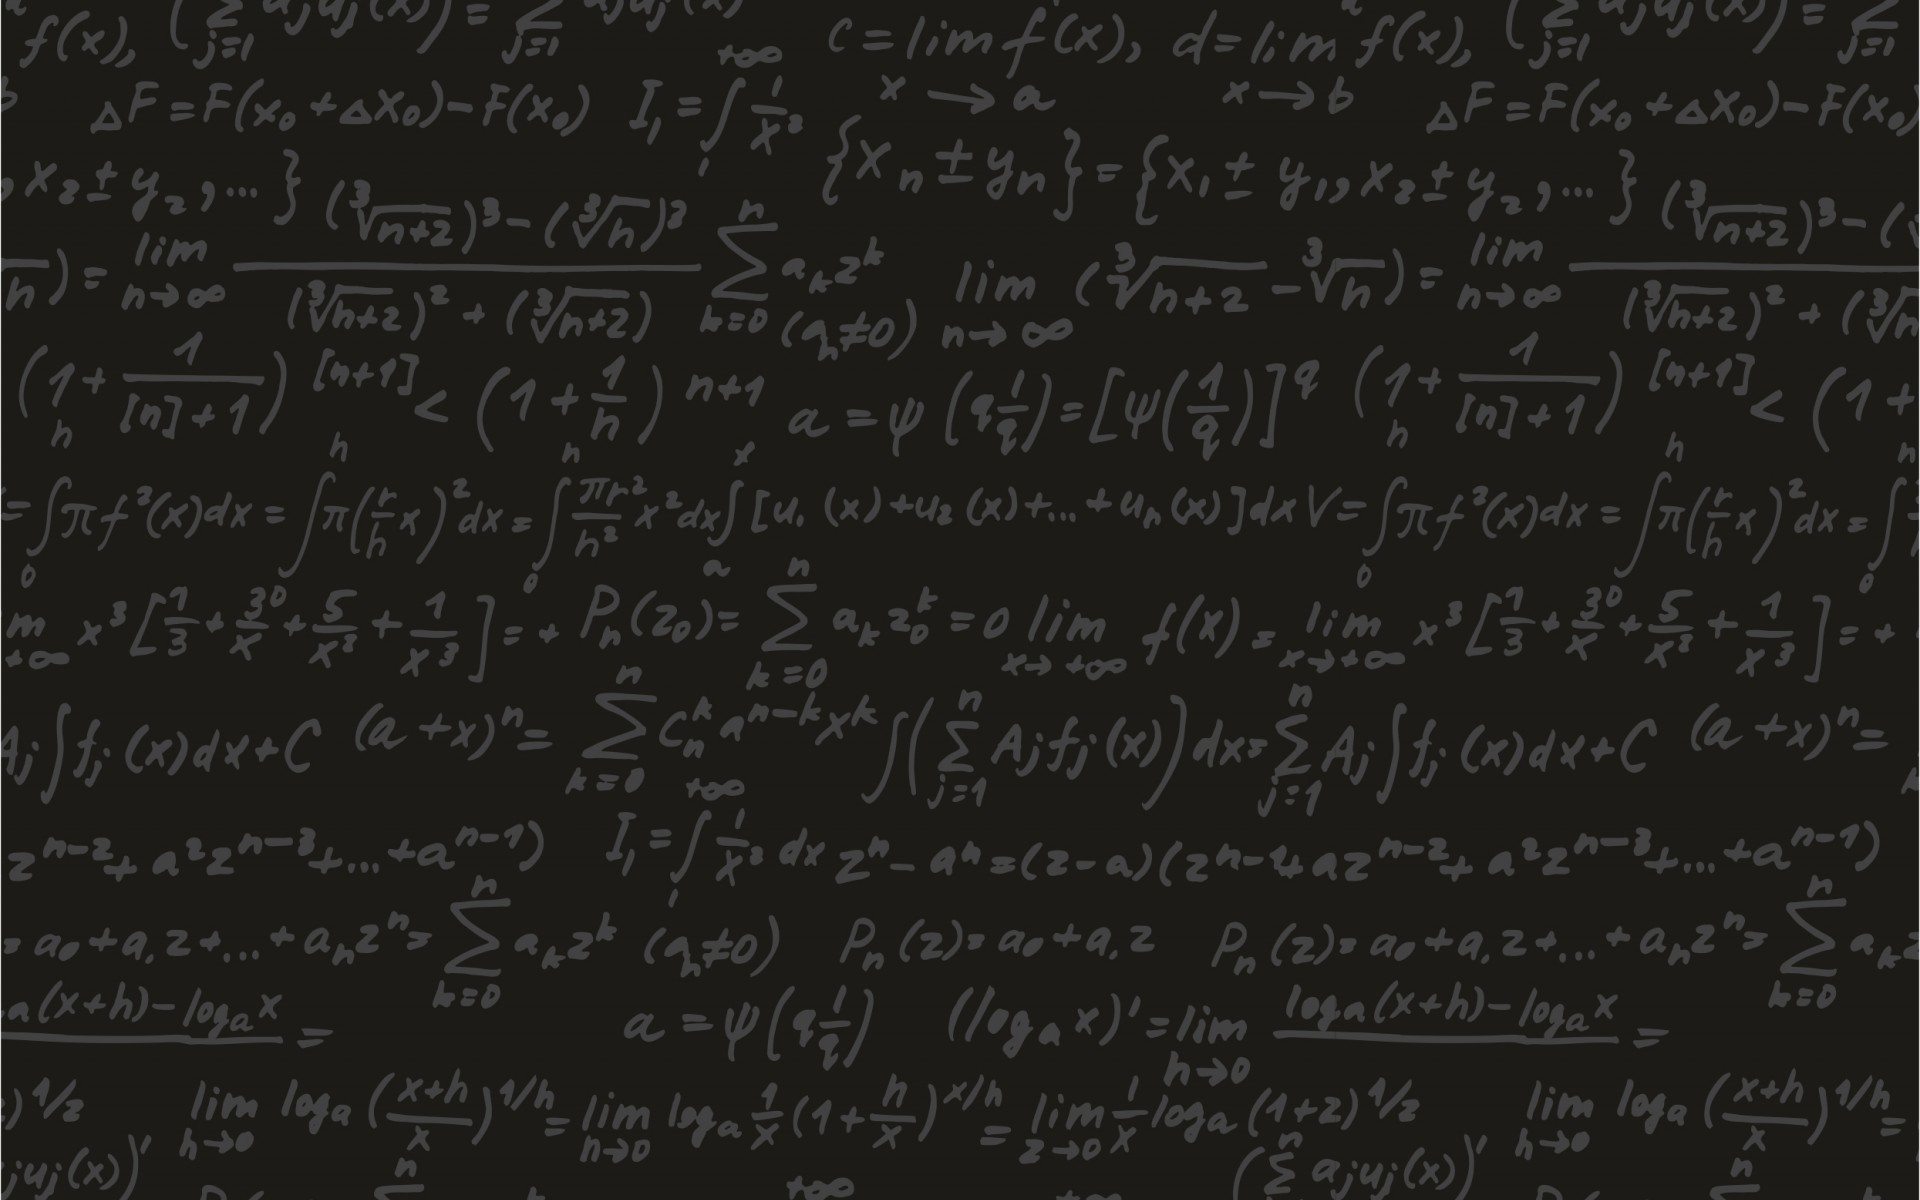 f(x), (∑ j=1 ajuj(x)) = ∑ j=1 ajuj(x) +∞ c = lim f(x), d = lim f(x), (∑ j=1 ajuj(x)) = ∑ j=1
b ΔF = F(x₀ + Δx₀) − F(x₀) I₁ = ∫₁ 1/x² x → a x → b ΔF = F(x₀ + Δx₀) − F(x₀)
, x₂ ± y₂, ... } {xₙ ± yₙ} = {x₁ ± y₁, x₂ ± y₂, ... }
n ) = lim n→∞ ((∛n+2)³ − (∛n)³) / ((∛n+2)² + (∛n+2)) ∑ k=0 n aₖzᵏ (aₙ≠0) lim n→∞ (∛n+2 − ∛n) = lim n→∞ ((∛n+2)³ − ( / ((∛n+2)² + (∛n
(1 + 1/([n]+1))^[n+1] < (1 + 1/n)^n+1 a = ψ(q 1/q) = [ψ(1/q)]^q (1 + 1/([n]+1))^[n+1] < (1 +
= ∫₀ʰ πf²(x)dx = ∫ʰ π(r/h x)²dx = ∫₀ʰ πr²/h² x²dx ∫ₐˣ [u₁(x) + u₂(x) + ... + uₙ(x)]dx V = ∫₀ʰ πf²(x)dx = ∫ʰ π(r/h x)²dx = ∫₀ʰ
m +∞ x³[1/3 + 30/x + 5/x² + 1/x³] = + Pₙ(z₀) = ∑ k=0 n aₖz₀ᵏ = 0 lim x→+∞ f(x) = lim x→+∞ x³[1/3 + 30/x + 5/x² + 1/x³] = +
Aj∫fj(x)dx + C (a + x)ⁿ = ∑ k=0 n Cₙᵏaⁿ⁻ᵏxᵏ ∫(∑ j=1 n Ajfj(x))dx = ∑ j=1 n Aj∫fj(x)dx + C (a + x)ⁿ =
zⁿ⁻² + a²zⁿ⁻³ + ... + aⁿ⁻¹) I₁ = ∫₁^+∞ 1/x² dx zⁿ − aⁿ = (z − a)(zⁿ⁻¹ + azⁿ⁻² + a²zⁿ⁻³ + ... + aⁿ⁻¹)
= a₀ + a₁z + ... + aₙzⁿ = ∑ k=0 n aₖzᵏ (aₙ≠0) Pₙ(z) = a₀ + a₁z Pₙ(z) = a₀ + a₁z + ... + aₙzⁿ = ∑ k=0 n aₖz
a(x+h) − logₐx = a = ψ(q 1/q) (logₐx)' = lim h→0 logₐ(x+h) − logₐx =
)^1/z lim h→0 logₐ((x+h)/x)^1/h = lim n→0 logₐ 1/x (1 + h/x)^x/h = lim z→0 1/x logₐ(1+z)^1/z lim h→0 logₐ((x+h)/x)^1/h =
juj(x))' n ∑ +∞ (∑ n ajuj(x))' n ∑